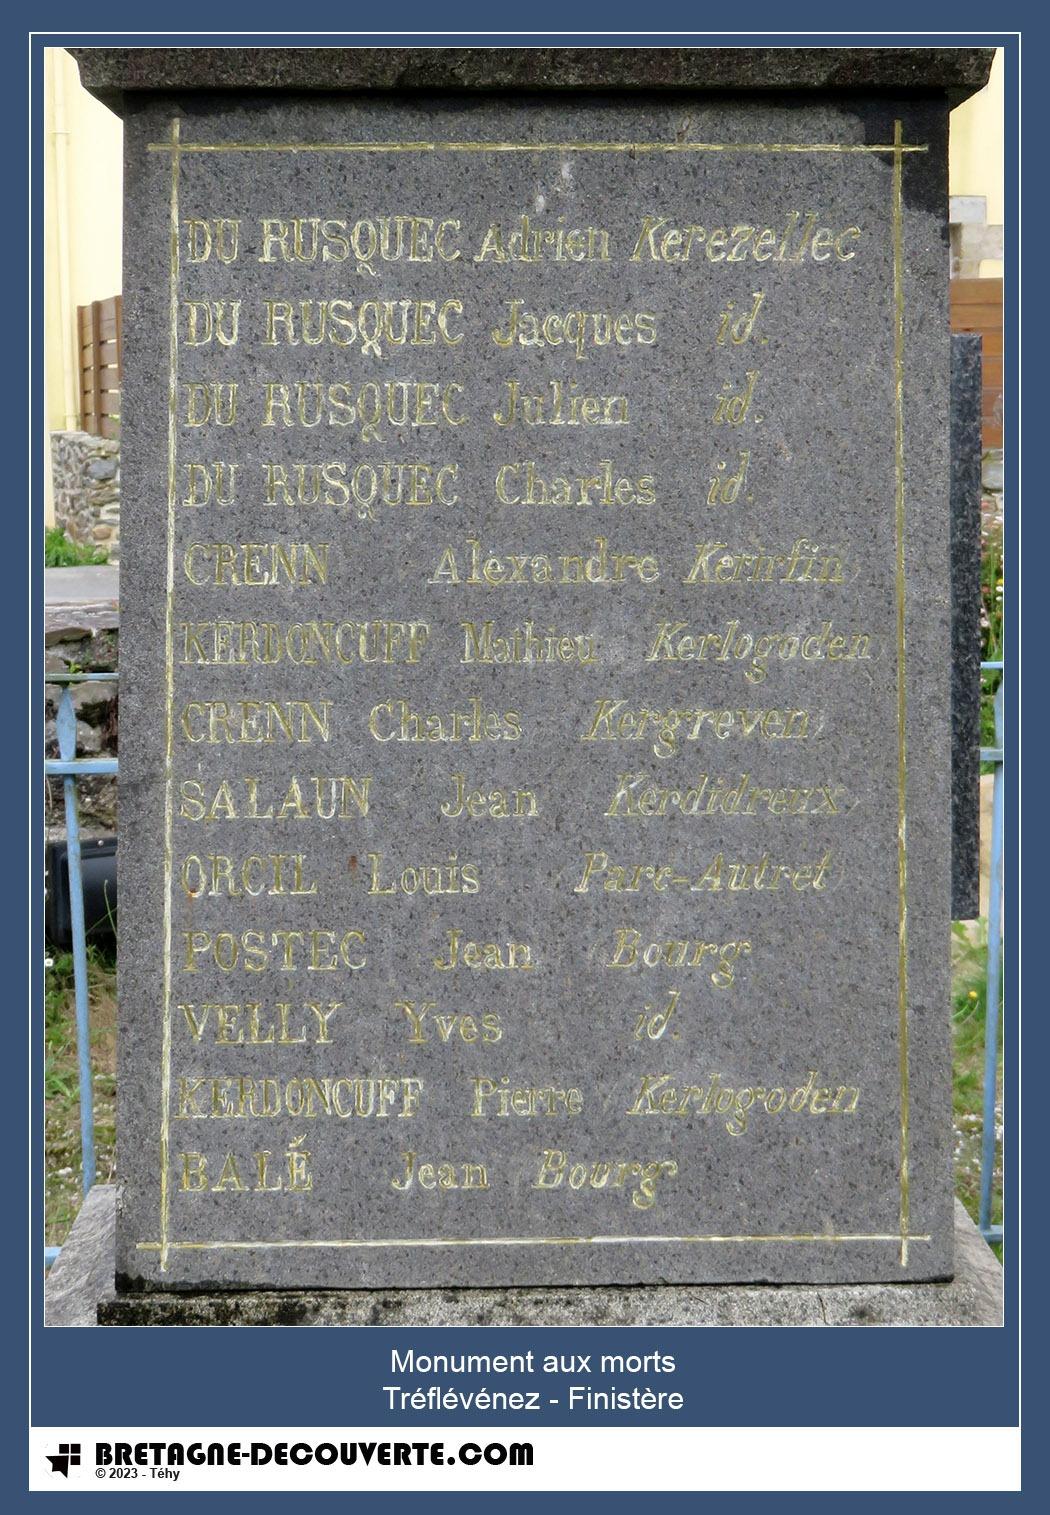 DU RUSQUEC Adrien Kerezellec
DU RUSQUEC Jacques id.
DU RUSQUEC Julien id.
DU RUSQUEC Charles id.
CRENN Alexandre Kerirfin
KERDONCUFF Mathieu Kerlogoden
CRENN Charles Kergreven
SALAUN Jean Kerdidreux
ORCIL Louis Parc-Autret
POSTEC Jean Bourg
VELLY Yves id.
KERDONCUFF Pierre Kerlogoden
BALÉ Jean Bourg
Monument aux morts
Tréflévénez - Finistère
BRETAGNE-DECOUVERTE.COM
© 2023 - Téhy